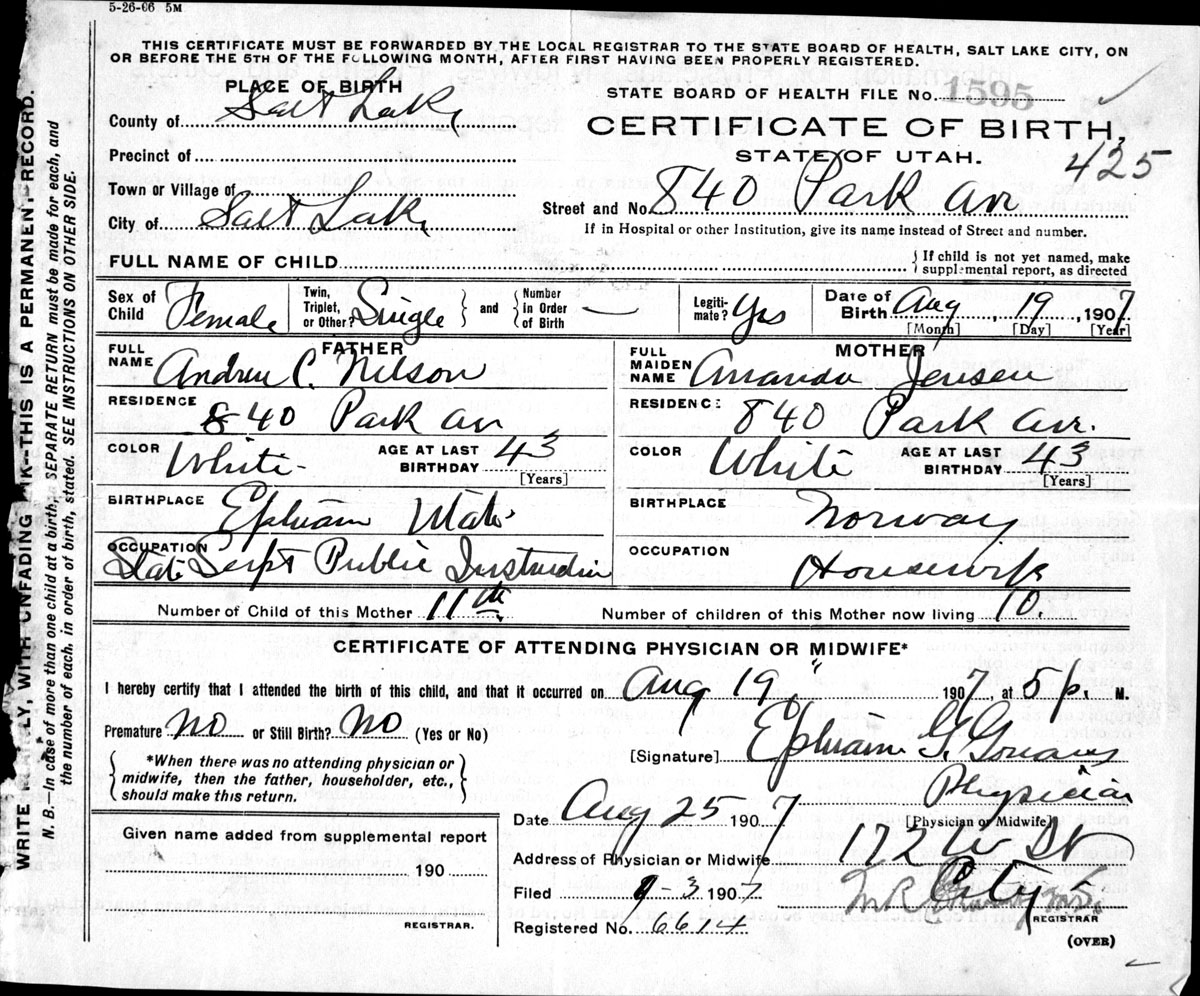 5-26-06 5M
THIS CERTIFICATE MUST BE FORWARDED BY THE LOCAL REGISTRAR TO THE STATE BOARD OF HEALTH, SALT LAKE CITY, ON
OR BEFORE THE 5TH OF THE FOLLOWING MONTH, AFTER FIRST HAVING BEEN PROPERLY REGISTERED.
PLACE OF BIRTH
STATE BOARD OF HEALTH FILE No. 1595
County of Salt Lake
CERTIFICATE OF BIRTH,
STATE OF UTAH.
425
Precinct of
Town or Village of
Street and No. 840 Park Av
City of Salt Lake
If in Hospital or other Institution, give its name instead of Street and number.
FULL NAME OF CHILD
If child is not yet named, make
supplemental report, as directed
Sex of Child Female
Twin, Triplet, or Other? Single
and
Number in Order of Birth —
Legiti-mate? Yes
Date of Birth Aug, 19, 1907
[Month] [Day] [Year]
FATHER
FULL NAME Andrew C. Nelson
RESIDENCE 840 Park av
COLOR White AGE AT LAST BIRTHDAY 43
[Years]
BIRTHPLACE Ephriam Utah
OCCUPATION State Supt Public Instruction
MOTHER
FULL MAIDEN NAME Amanda Jensen
RESIDENCE 840 Park av.
COLOR White AGE AT LAST BIRTHDAY 43
[Years]
BIRTHPLACE Norway
OCCUPATION Housewife
Number of Child of this Mother 11th Number of children of this Mother now living 10.
CERTIFICATE OF ATTENDING PHYSICIAN OR MIDWIFE*
I hereby certify that I attended the birth of this child, and that it occurred on Aug 19, 1907, at 5 p. M.
Premature No or Still Birth? No (Yes or No)
[Signature] Ephriam G. Gowans
*When there was no attending physician or
midwife, then the father, householder, etc.,
should make this return.
Physician
[Physician or Midwife]
Date Aug 25 1907
Address of Physician or Midwife 172 W St
City
Filed 9-3 1907
REGISTRAR
Registered No. 6614
(OVER)
Given name added from supplemental report
190
REGISTRAR.
WRITE PLAINLY, WITH UNFADING INK—THIS IS A PERMANENT RECORD.
N. B.—In case of more than one child at a birth, a SEPARATE RETURN must be made for each, and
the number of each, in order of birth, stated. SEE INSTRUCTIONS ON OTHER SIDE.